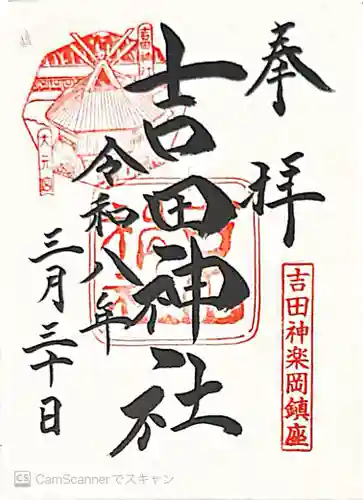 奉拝
吉田神楽岡鎮座
吉田神社
令和八年
三月三十日
大元宮
CS CamScannerでスキャン